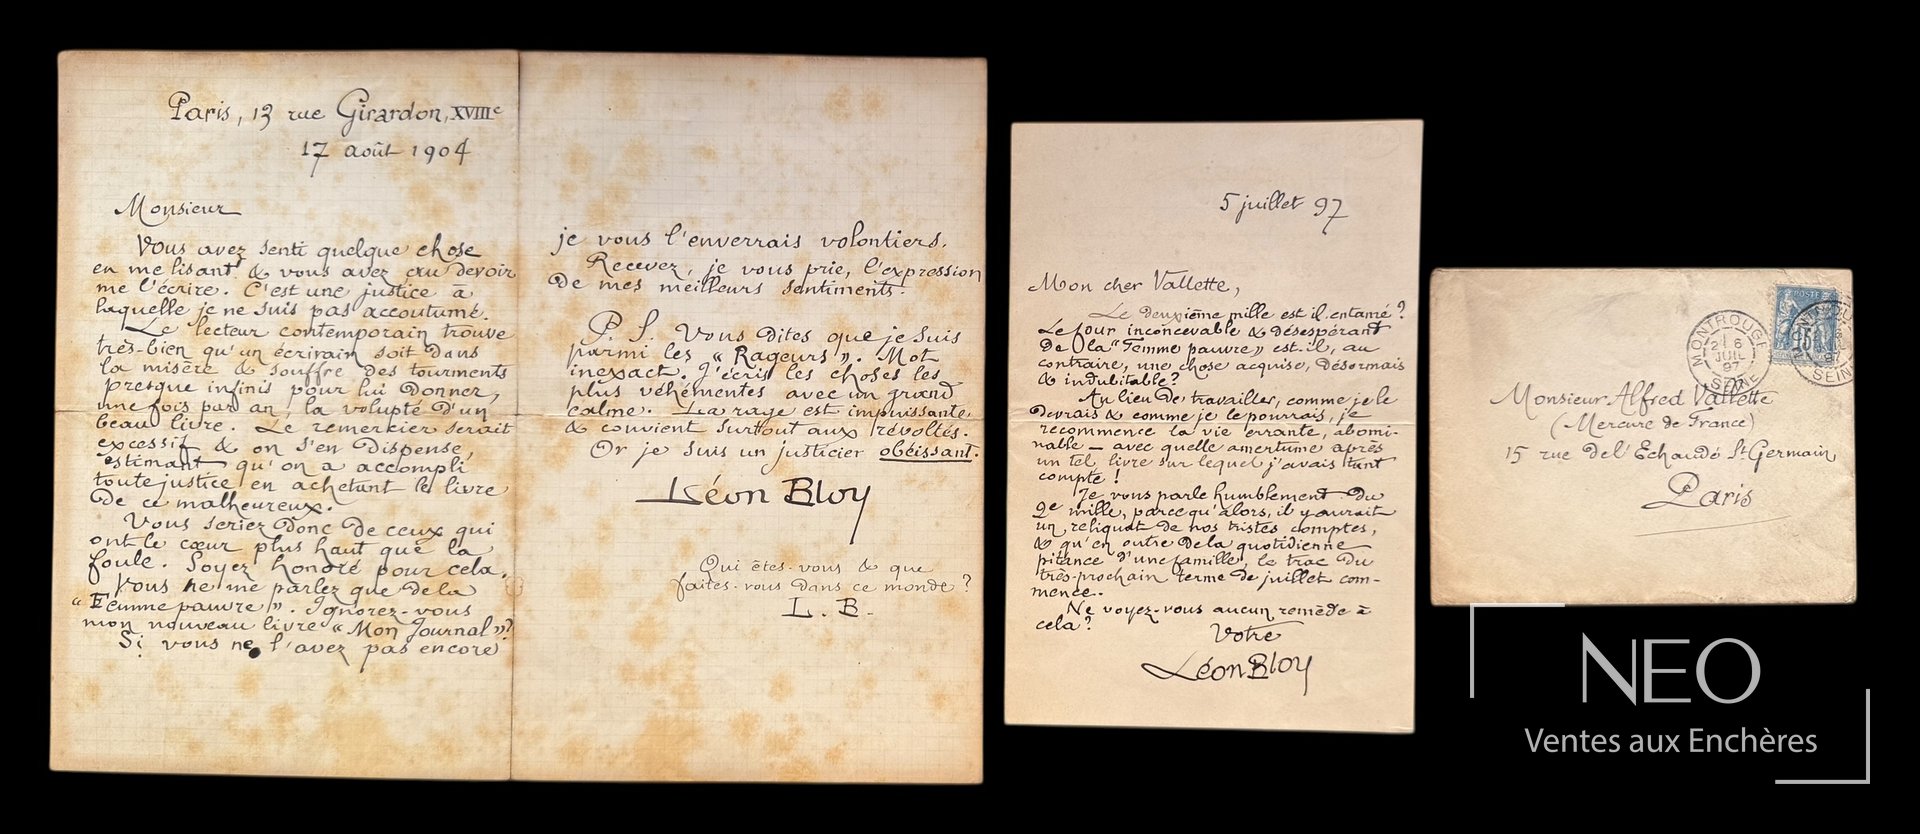 Paris, 13 rue Girardon, XVIIIe
17 août 1904
Monsieur
Vous avez senti quelque chose
en me lisant & vous avez cru devoir
me l'écrire. C'est une justice à
laquelle je ne suis pas accoutumé.
Le lecteur contemporain trouve
très-bien qu'un écrivain soit dans
la misère & souffre des tourments
presque infinis pour lui donner,
une fois par an, la volupté d'un
beau livre. Le remercier serait
excessif & on s'en dispense,
estimant qu'on a accompli
toute justice en achetant le livre
de ce malheureux.
Vous seriez donc de ceux qui
ont le cœur plus haut que la
foule. Soyez honoré pour cela.
Vous ne me parlez que de la
« Femme pauvre ». Ignorez-vous
mon nouveau livre « Mon Journal »?
Si vous ne l'avez pas encore
je vous l'enverrais volontiers.
Recevez, je vous prie, l'expression
de mes meilleurs sentiments.
P. S. Vous dites que je suis
parmi les « Rageurs ». Mot
inexact. J'écris les choses les
plus véhémentes avec un grand
calme. La rage est impuissante
& convient surtout aux révoltés.
Or je suis un justicier obéissant.
Léon Bloy
Qui êtes-vous & que
faites-vous dans ce monde?
L. B.
5 juillet 97
Mon cher Vallette,
Le deuxième mille est-il entamé?
Le four inconcevable & désespérant
de la « Femme pauvre » est-il, au
contraire, une chose acquise, désormais
& indubitable?
Au lieu de travailler, comme je le
devrais & comme je le pourrais, je
recommence la vie errante, abomi-
nable — avec quelle amertume après
un tel livre sur lequel j'avais tant
compté!
Je vous parle humblement du
2e mille, parce qu'alors, il y aurait
un reliquat de nos tristes comptes,
& qu'en outre de la quotidienne
pitance d'une famille, le trac du
très-prochain terme de juillet com-
mence.
Ne voyez-vous aucun remède à
cela?
Votre
Léon Bloy
MONTROUGE
2E 6
JUIL
97
SEINE
POSTE
15
97
SEINE
Monsieur Alfred Vallette
(Mercure de France)
15 rue de l'Echaudé St Germain
Paris
NEO
Ventes aux Enchères